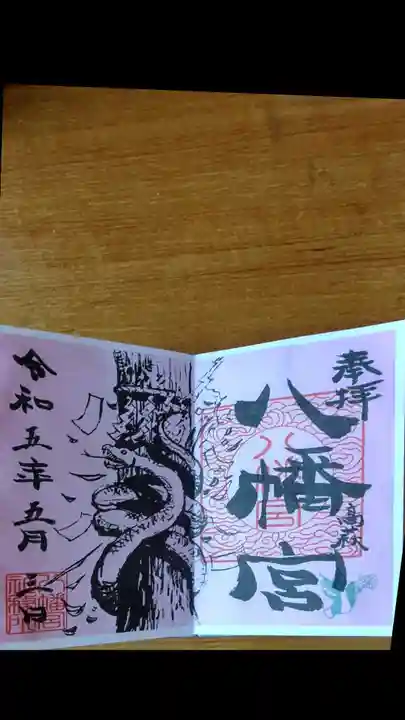 奉拝
八幡宮
令和五年五月三日